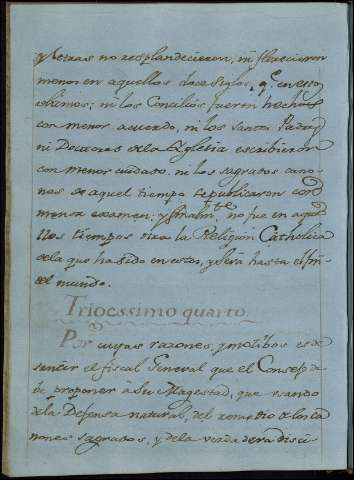 y letras no resplandecieron, ni florecieron
menos en aquellos doce siglos, q.e en estos
ultimos; ni los Concilios fueron hechos
con menor acuerdo, ni los santos Padres
ni Doctores de la Yglesia escribieron
con menor cuidado, ni los sagrados cano-
nes de aquel tiempo se publicaron con
menor examen; y finalm.te no fue en aque-
llos tiempos otra la Religion Catholica
de la que ha sido en estos, y será hasta el fin
del mundo.
Trigessimo quarto.
Por cuyas razones, y motibos es de
sentir el fiscal General que el Consejo de-
be proponer à Su Magestad, que usando
de la Defensa natural, del remedio de los Ca
nones sagrados, y de la verdadera disci-